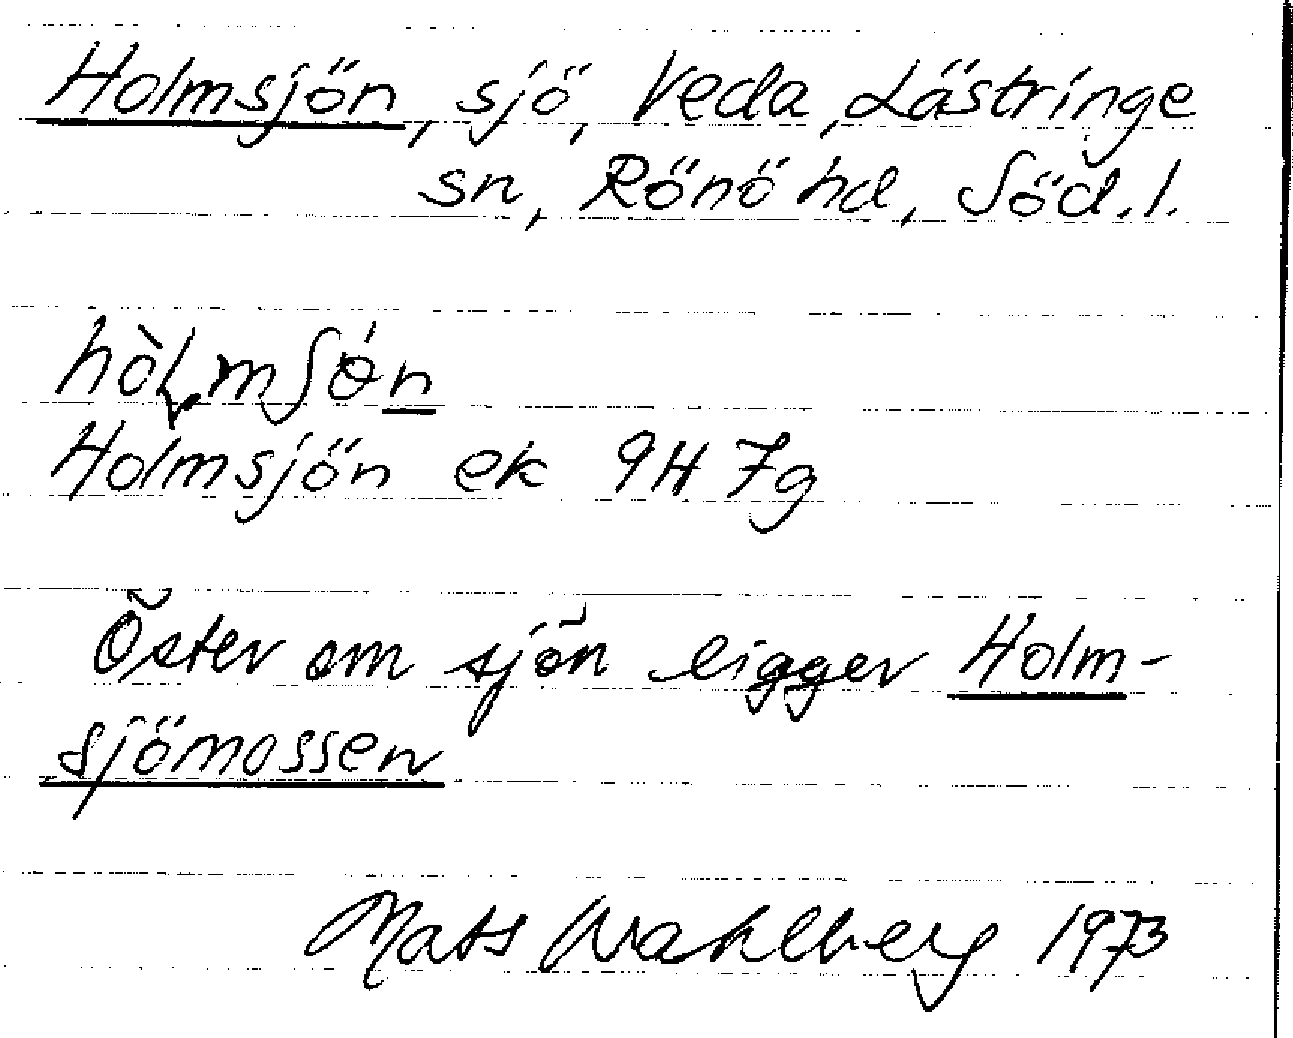 Holmsjön, sjö, Veda, Lästringe
sn, Rönö hd, Söd.l.
Holmsjön ek 9H 7g
Öster om sjön ligger Holm-
sjömossen
Mats Wahlberg 1973